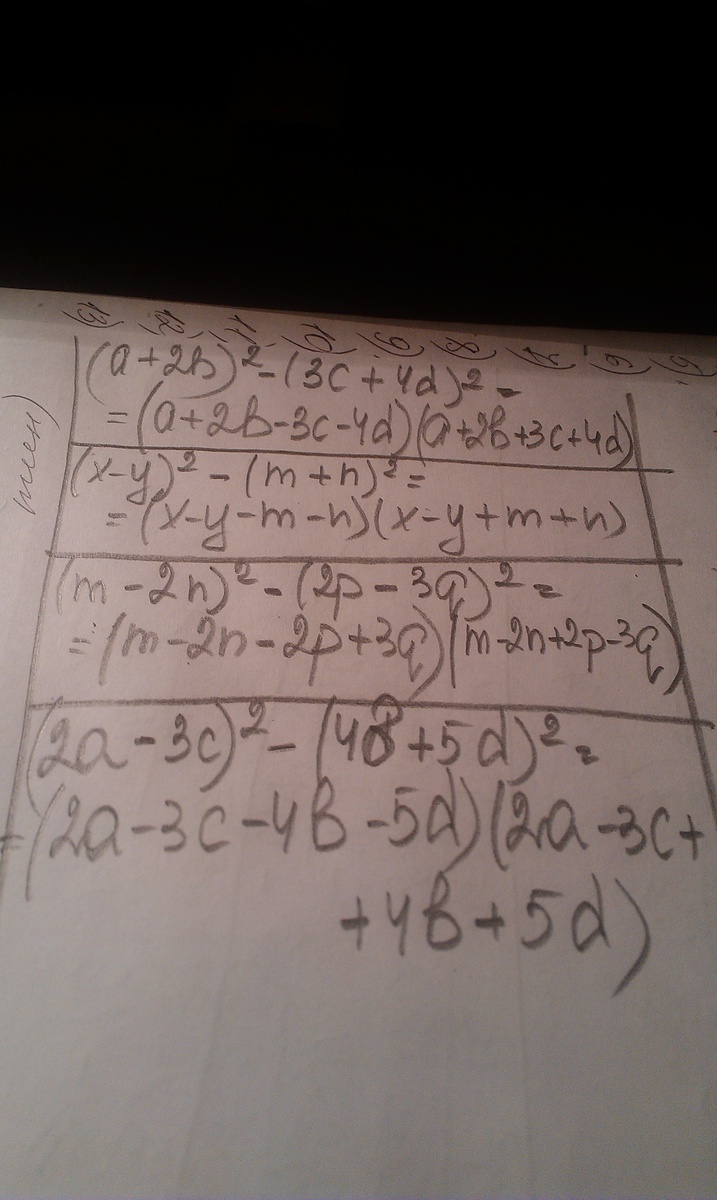 13) 12) 11) 10) 9) 8) 7) 6) 5)
(a+2b)²-(3c+4d)²=
=(a+2b-3c-4d)(a+2b+3c+4d)
(x-y)²-(m+n)²=
=(x-y-m-n)(x-y+m+n)
(m-2n)²-(2p-3q)²=
=(m-2n-2p+3q)(m-2n+2p-3q)
(2a-3c)²-(4b+5d)²=
=(2a-3c-4b-5d)(2a-3c+
+4b+5d)